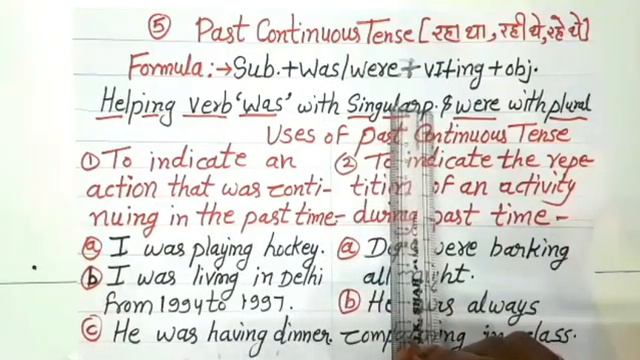 ⑤ Past Continuous Tense [रहा था, रही थे, रहे थे]
Formula:→ Sub. + Was/were + vIting + obj.
Helping verb 'was' with Singular & were with plural
Uses of Past Continuous Tense
① To indicate an
action that was conti-
nuing in the past time-
ⓐ I was playing hockey.
ⓑ I was living in Delhi
from 1994 to 1997.
ⓒ He was having dinner.
② To indicate the repe-
tition of an activity
during past time -
ⓐ Dogs were barking
all night.
ⓑ He was always
complaining in class.